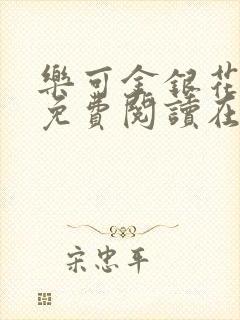 樂可金銀花
免費閱讀在
宋忠平